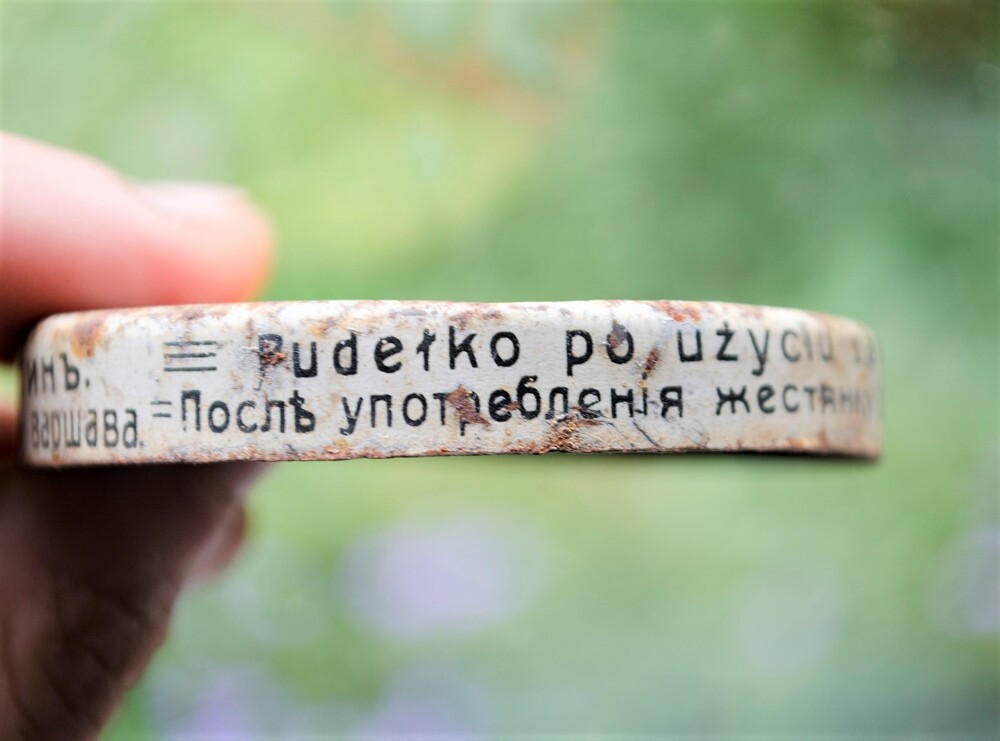 инъ. ≡ Pudełko po użyciu
варшава. =Послѣ употребленія жестянку